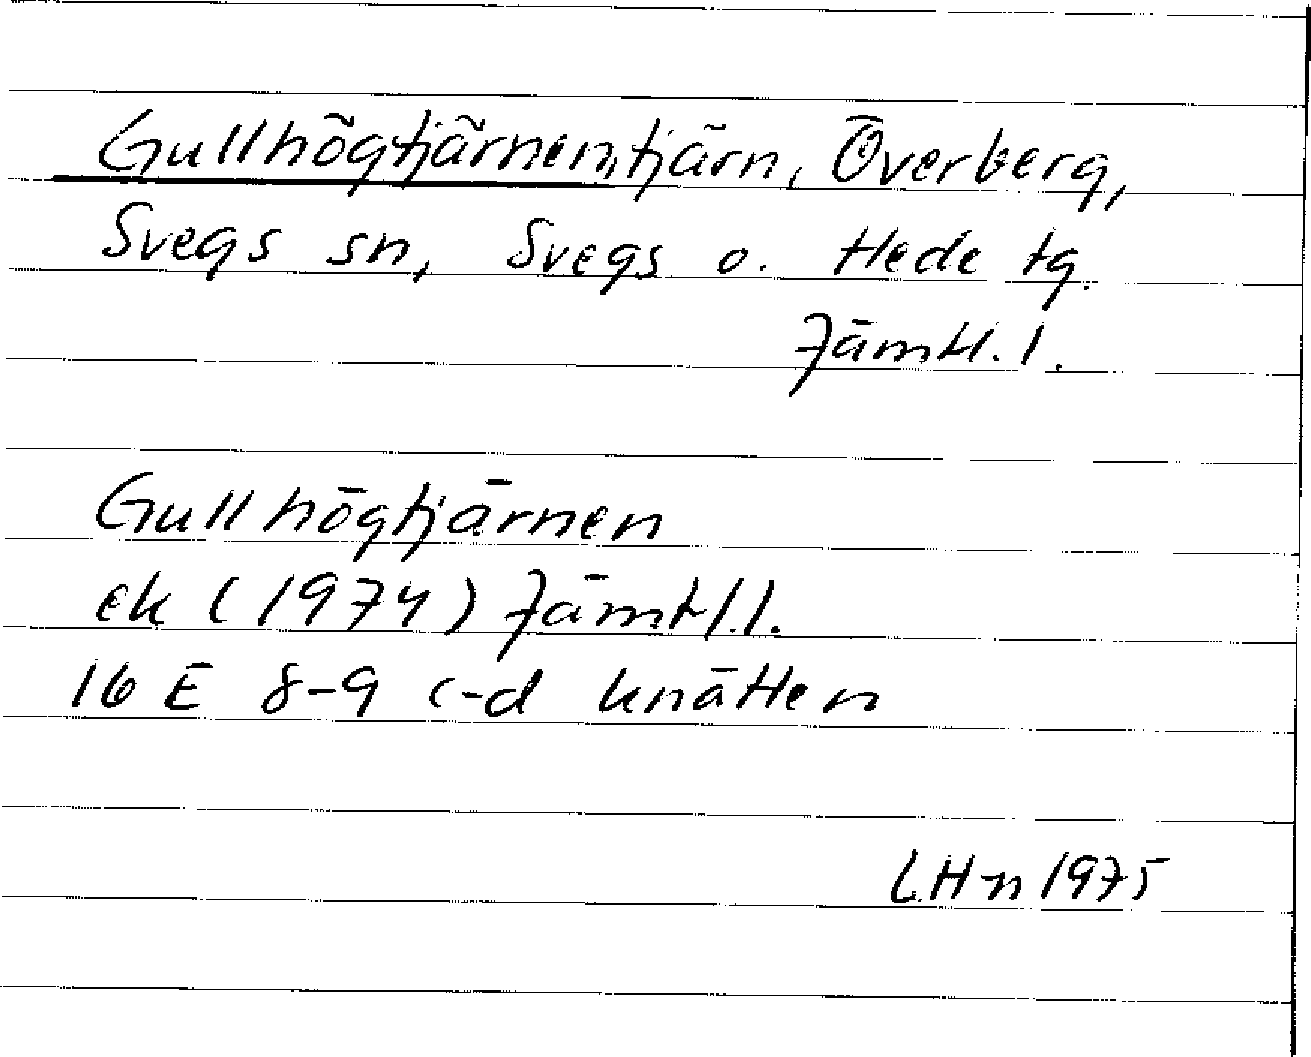 Gullhögtjärnen, tjärn, Överberg,
Svegs sn, Svegs o. Hede tg.
Jämtl. l.
Gullhögtjärnen
ek (1974) Jämtl.l.
16 E 8-9 c-d knätten
L.Hn 1975